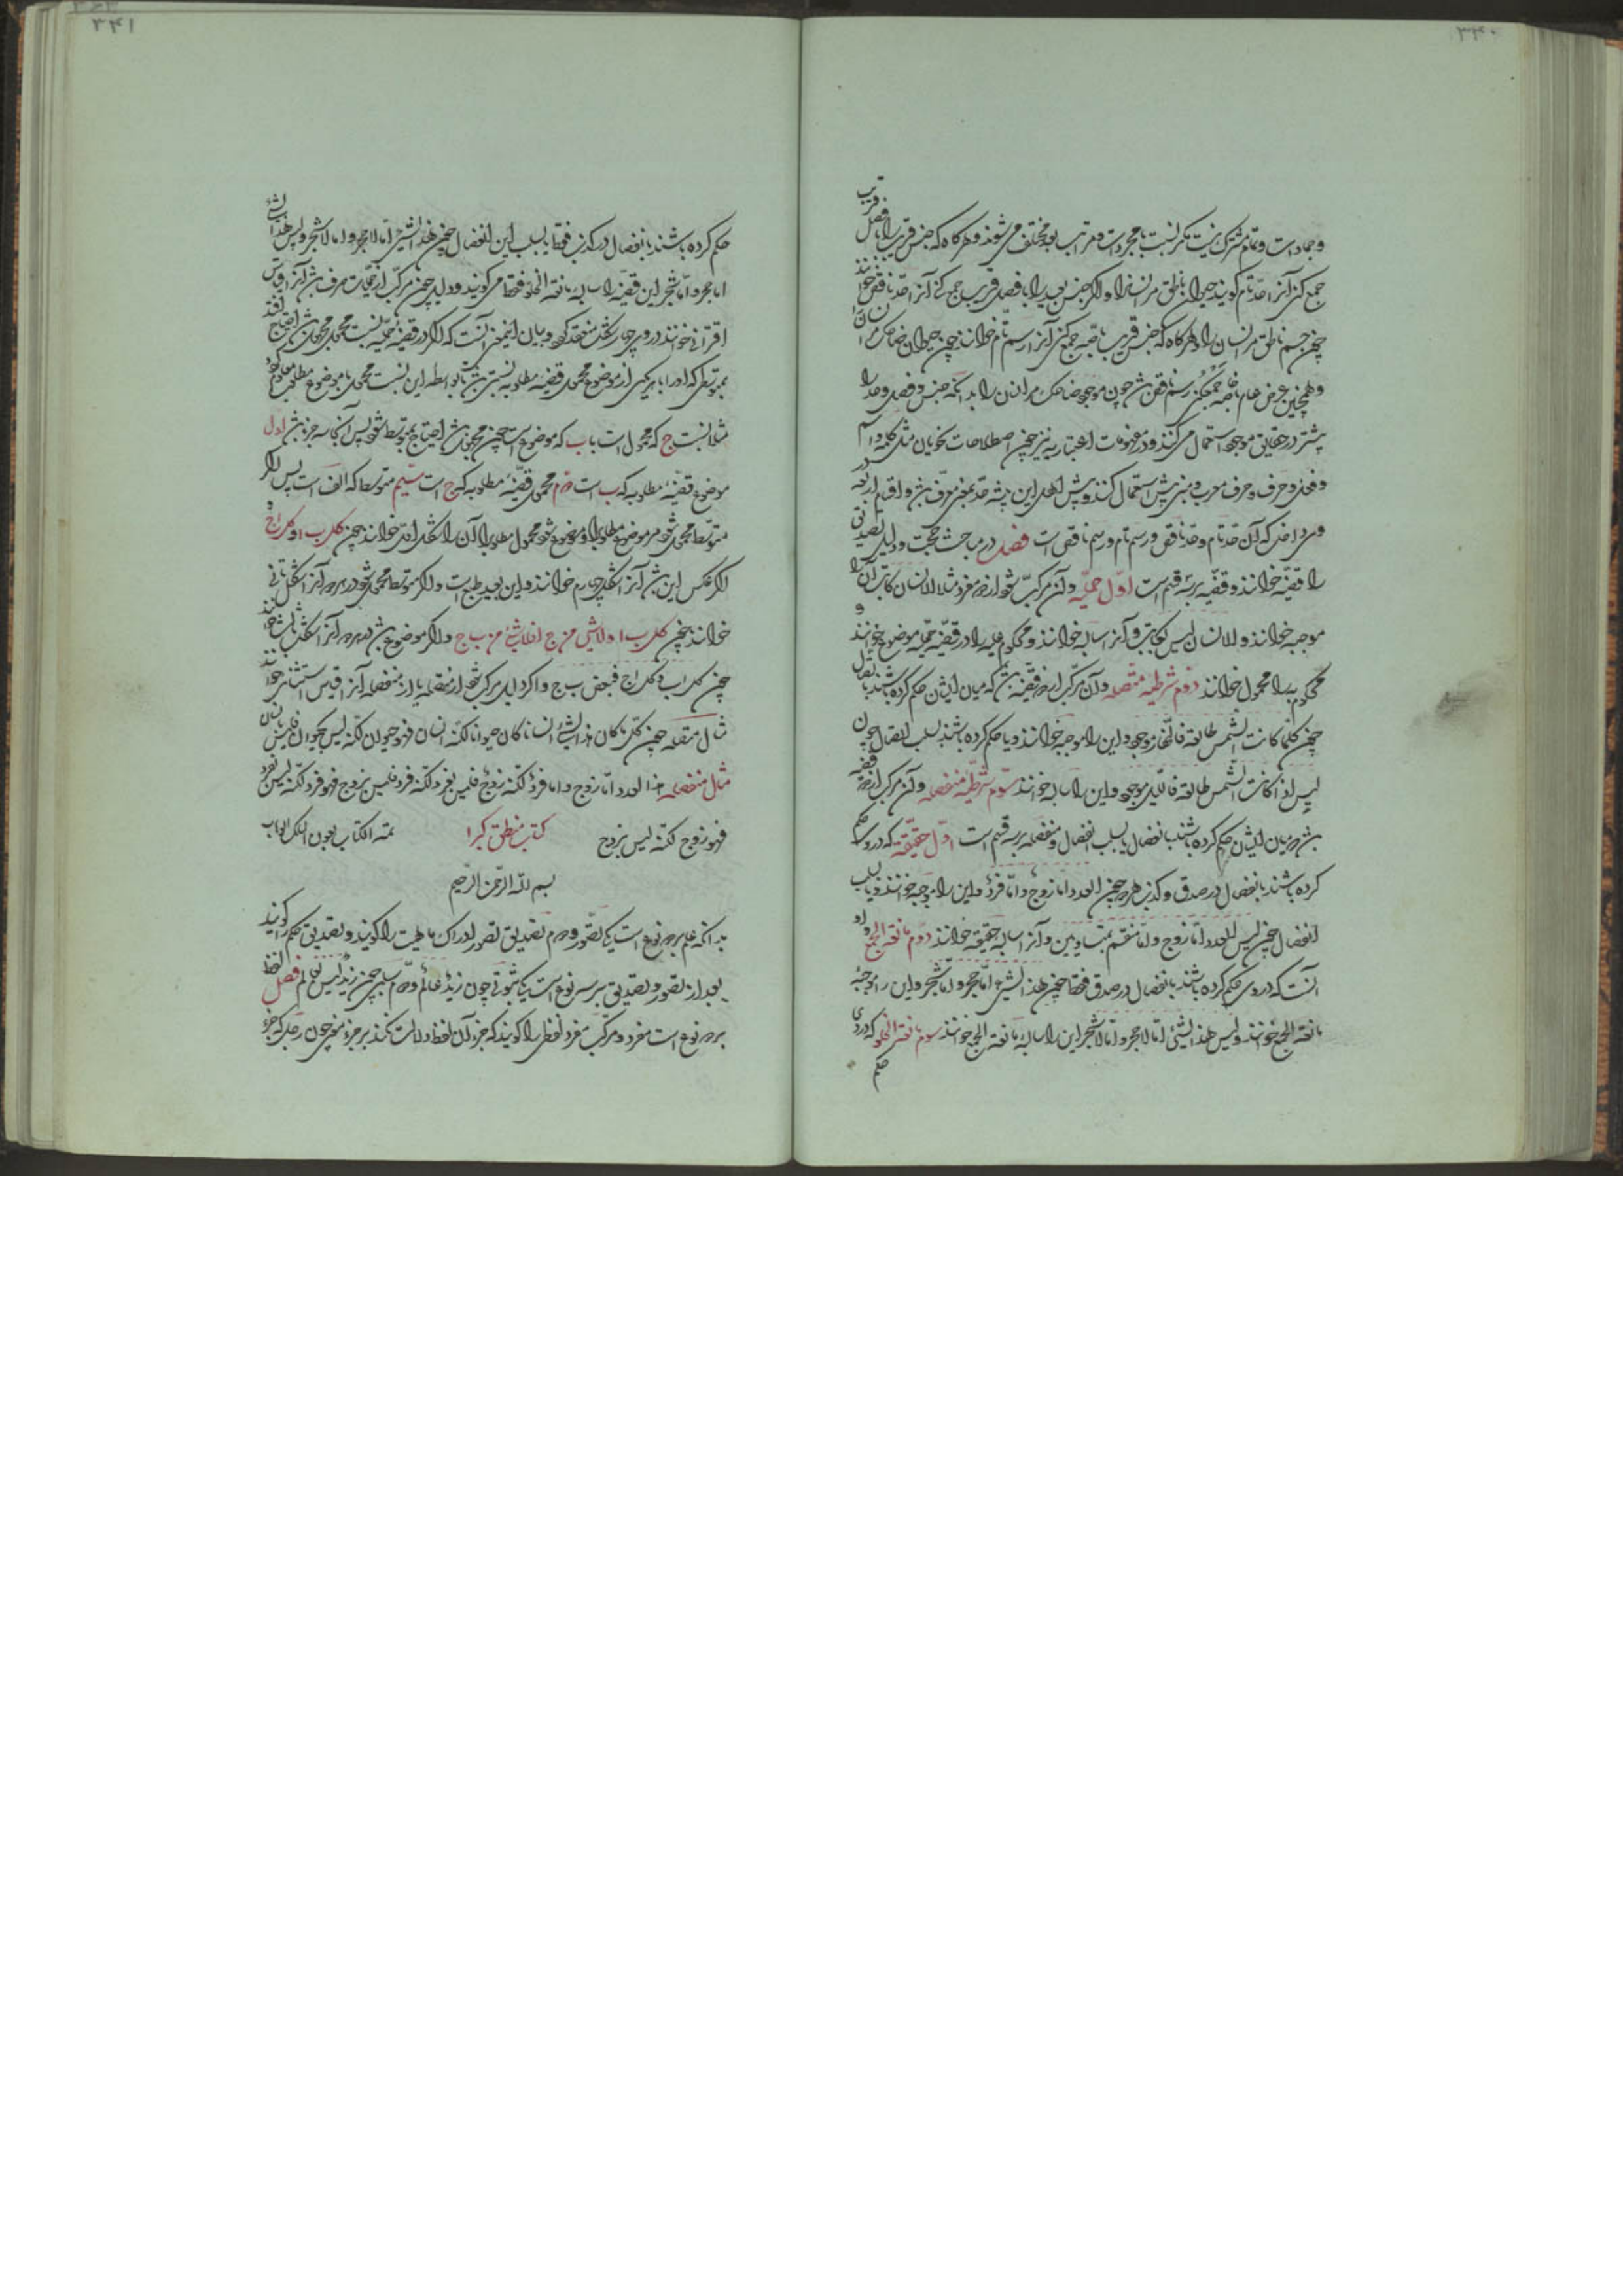 ۳۴۰
و جمادات و تمام مشترک نیست مگر نسبت بمجردات و مراتب بعد مختلف می شوند و هرگاه که جنس قریب را با فصل قریب
جمع کنی آنرا حد تام گویند چون حیوان ناطق مر انسانرا و اگر جنس بعید را با فصل قریب جمع کنی آنرا حد ناقص خوانند
چون جسم ناطق مر انسان را و هرگاه که جنس قریب با خاصه جمع کنی آنرا رسم تام خوانند چون حیوان ضاحک مر انسان را
و همچنین عرض عام با خاصه جمع کنی رسم ناقص باشد چون موجود ضاحک مر انسان را بدانکه جنس و فصل و حد را
بیشتر در حقایق موجوده استعمال می کنند و در مفهومات اعتباریه نیز چون اصطلاحات نحویان مثل کلمه و اسم
و فعل و حرف و حرف معرب و مبنی پیش استعمال کنند و پیش اهل این پیشه حد بمعنی معرف باشد و اقسام اربعه
را قضیه خوانند و قضیه بر سه قسم است اول حملیه و آن مرکب شود از دو مفرد مثلا الانسان کاتب آن را
موجبه خوانند و الانسان لیس بکاتب و آنرا سالبه خوانند و محکوم علیه را در قضیه حملیه موضوع خوانند و
محکوم به را محمول خوانند دوم شرطیه متصله و آن مرکب از دو قضیه باشد که میان ایشان حکم کرده باشند باتصال
چون کلما کانت الشمس طالعة فالنهار موجود و این را موجبه خوانند و یا حکم کرده باشند بسلب اتصال چون
لیس اذا کانت الشمس طالعة فاللیل موجود و این را سالبه خوانند سوم شرطیه منفصله و آن مرکب از دو قضیه
باشد که میان ایشان حکم کرده باشند بانفصال یا بسلب انفصال و منفصله بر سه قسم است اول حقیقیه که در وی حکم
کرده باشند بانفصال در صدق و کذب هر دو چون العدد اما زوج و اما فرد و این را موجبه خوانند و یا بسلب
انفصال چون لیس العدد اما زوج و اما منقسم بمتساویین و آنرا سالبه حقیقیه خوانند دوم مانعة الجمع و او
آنست که در وی حکم کرده باشند بانفصال در صدق فقط چون هذا الشیء اما حجر و اما شجر و این را موجبه
مانعة الجمع خوانند و لیس هذا الشیء اما لا حجر و اما لا شجر این را سالبه مانعة الجمع خوانند سوم مانعة الخلو که در وی
حکم
۳۴۱
حکم کرده باشند بانفصال در کذب فقط یا بسلب این انفصال چون هذا الشیء اما لا حجر و اما لا شجر و لیس هذا الشیء
اما حجر و اما شجر این قضیه را سالبه مانعة الخلو فقط می گویند و دلیل چون مرکب از حملیات صرف باشد آنرا قیاس
اقترانی خوانند و در وی چهار شکل منعقد گردد و بیان این معنی آنست که اگر در قضیه حملیه نسبت محمول مجهول باشد احتیاج افتد
بمتوسطی که او را با هر یکی از موضوع و محمول قضیه مطلوبه نسبتی باشد تا بواسطه این نسبت محمول با موضوع مطلوب معلوم شود
مثلا نسبت ج که محمول است با ب که موضوع است چون مجهول باشد احتیاج بمتوسط شود پس آنجا سه چیز باشد اول
موضوع قضیه مطلوبه که ب است دوم محمول قضیه مطلوبه که ج است سیم متوسط که الف است پس اگر
متوسط محمول شود مر موضوع مطلوب را و موضوع شود محمول مطلوب را آن را شکل اول خوانند چون کل ب ا و کل ا ج و
اگر عکس این باشد آنرا شکل چهارم خوانند و این بعید طبع است و اگر متوسط محمول شود در هر دو آنرا شکل ثانی
خوانند چون کل ب ا و لا شیء من ج ا فلا شیء من ب ج و اگر موضوع باشد در هر دو آنرا شکل ثالث خوانند
چون کل ا ب و کل ا ج فبعض ب ج و اگر دلیل مرکب شود از متصله یا از منفصله آنرا قیاس استثنائی خوانند
مثال متصله چون کلما کان هذا الشیء انسانا کان حیوانا لکنه انسان فهو حیوان لکنه لیس بحیوان فلیس بانسان
مثال منفصله هذا العدد اما زوج و اما فرد لکنه زوج فلیس بفرد لکنه فرد فلیس بزوج فهو فرد لکنه لیس بفرد
فهو زوج لکنه لیس بزوج کتاب منطق کبرا تمة الکتاب بعون الملک الوهاب
بسم الله الرحمن الرحیم
بدانکه علم بر دو نوع است یکی تصور و دوم تصدیق تصور ادراک ماهیت را گویند و تصدیق حکم را گویند
بعد از تصور و تصدیق بر سر نوع است یکی ثبوتی چون زید عالم و دوم سلبی چون زید لیس بعالم فصل لفظ
بر دو نوع است مفرد و مرکب مفرد لفظی را گویند که جزء آن لفظ دلالت نکند بر جزء معنی چون رجل که جزء